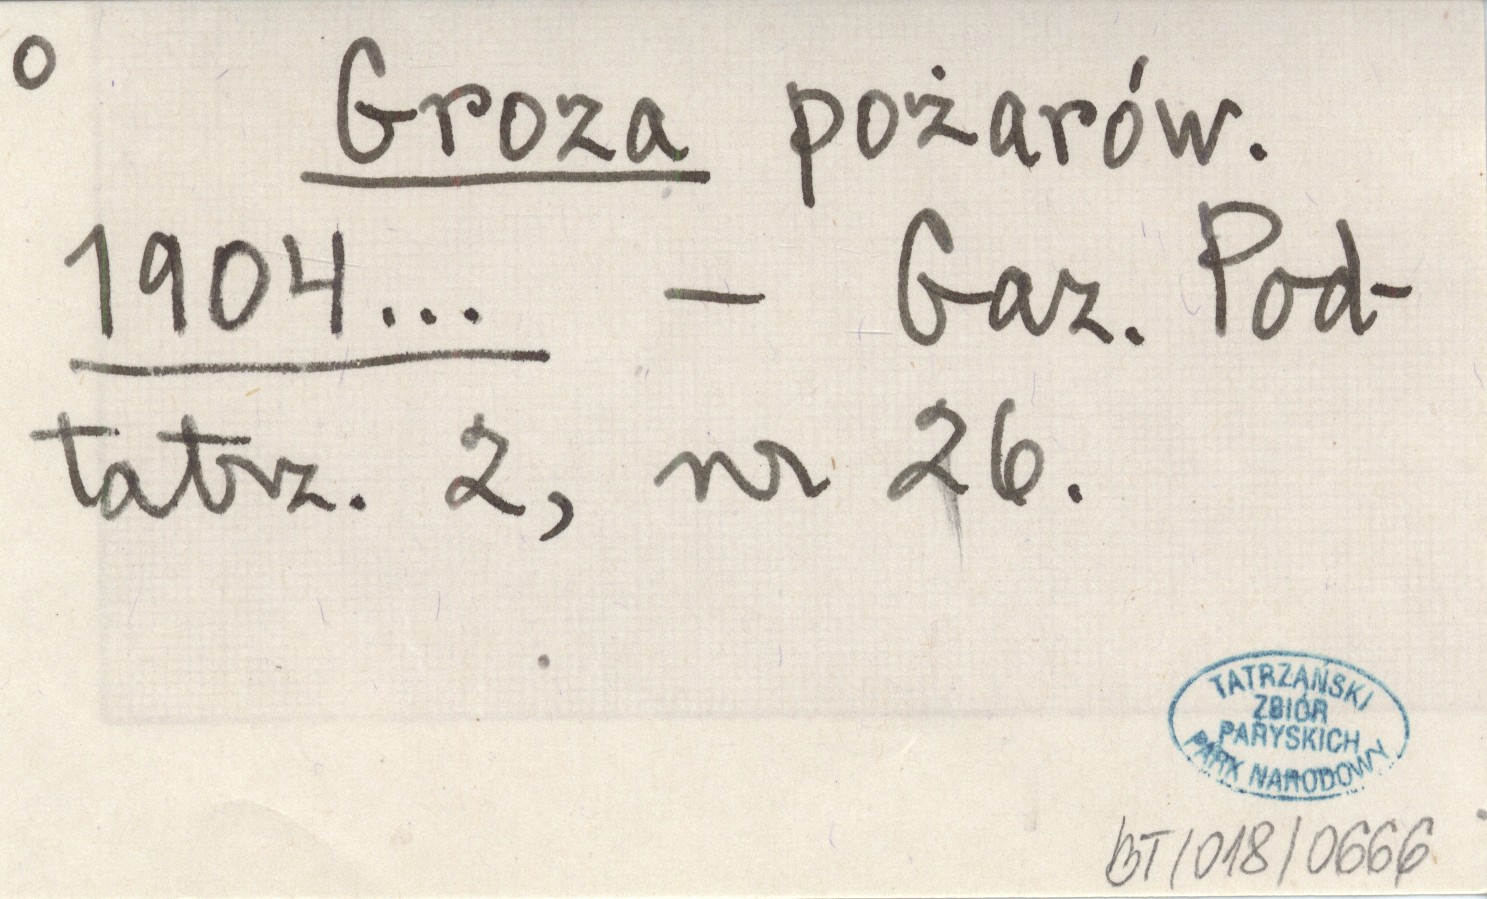 o
Groza pożarów.
1904... — Gaz. Pod-
tatrz. 2, nr 26.
TATRZAŃSKI
ZBIÓR
PARYSKICH
PARK NARODOWY
BT/018/0666